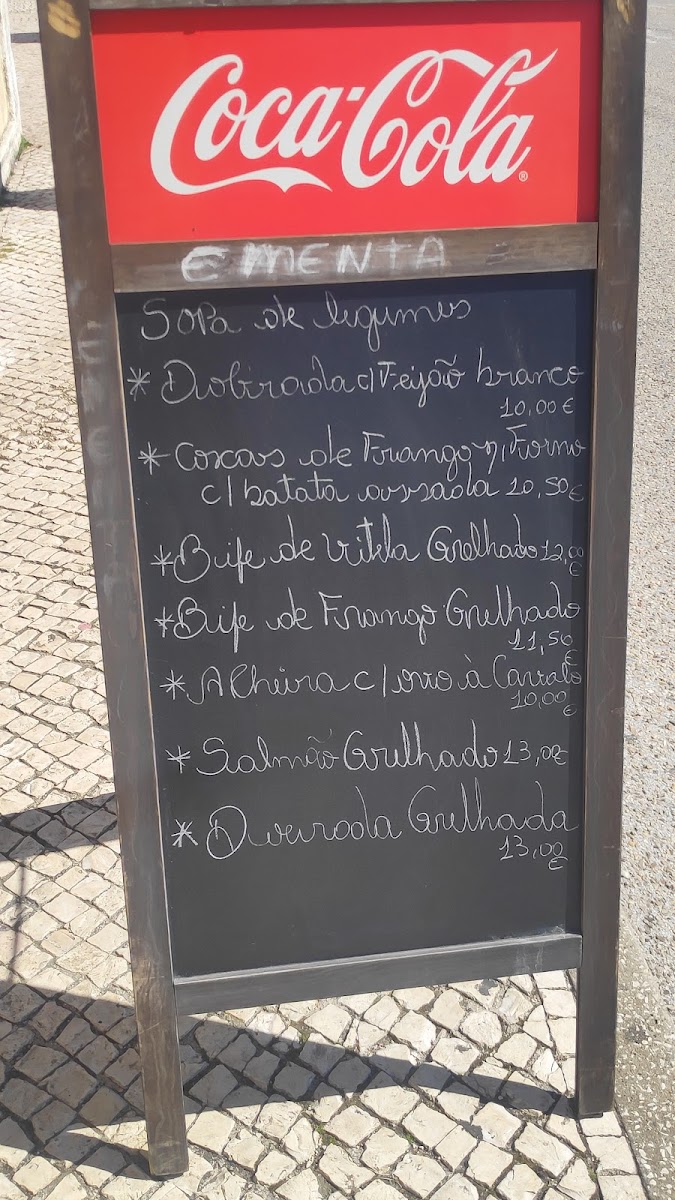 Coca-Cola®
EMENTA
Sopa de legumes
* Dobrada c/ Feijão branco
10,00€
* Coxas de Frango n, Forno
c/ batata assada 10,50€
* Bife de Vitela Grelhado 12,00
€
* Bife de Frango Grelhado
11,50
€
* Alheira c/ ovo à Cavalo
10,00€
* Salmão Grelhado 13,00€
* Dourada Grelhada
13,00
€